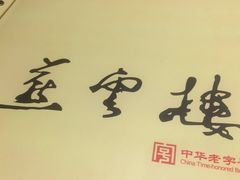 燕雲樓
中华老字
China Time-honored